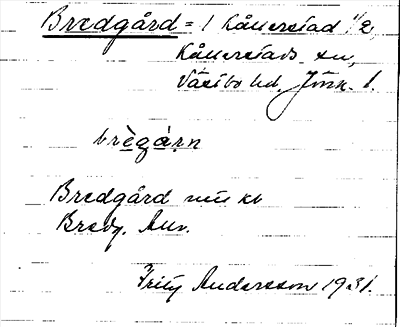 Bredgård = 1 Kållerstad 1/2,
Kållerstads sn,
Västbo hd. Jönk. l.
brègárn
Bredgård
Bredg.
Fritz Andersson 1931.